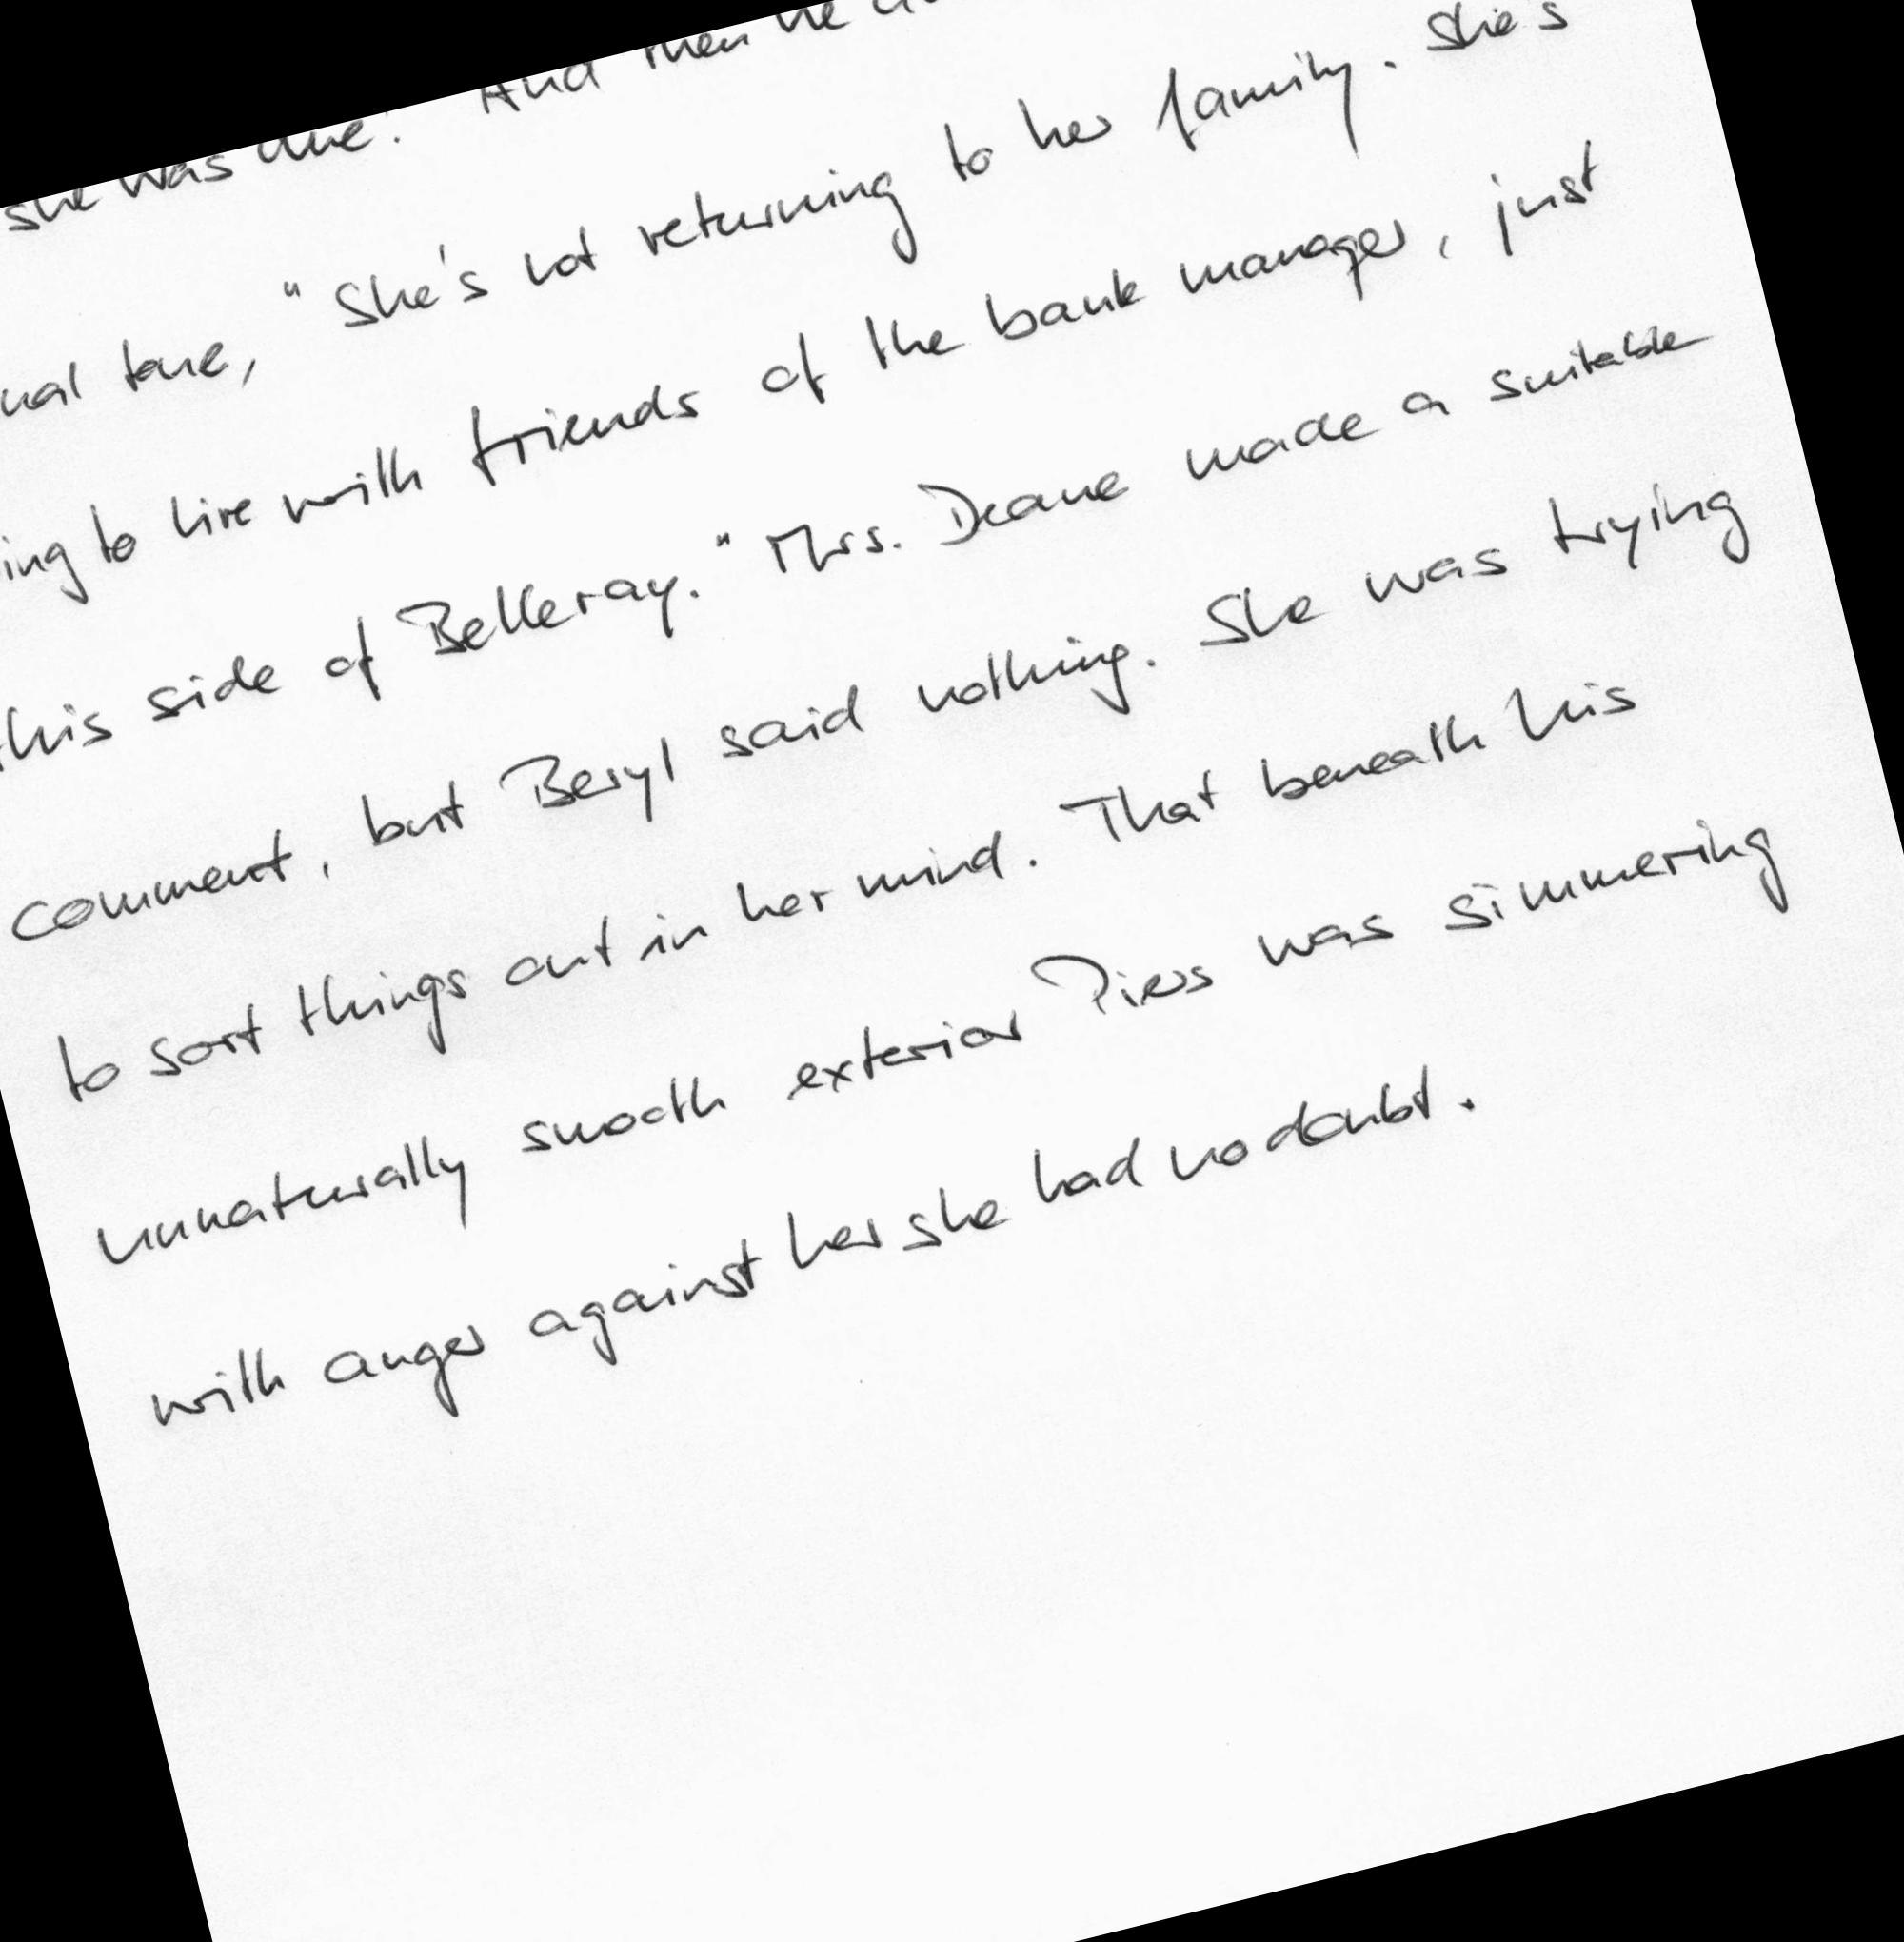 she was And then he
tone, "She's not returning to her family. She's
to live with friends of the bank manager, just
this side of Belleray." Mrs. Deane made a suitable
comment, but Beryl said nothing. She was trying
to sort things out in her mind. That beneath his
unnaturally smooth exterior Piers was simmering
with anger against her she had no doubt.